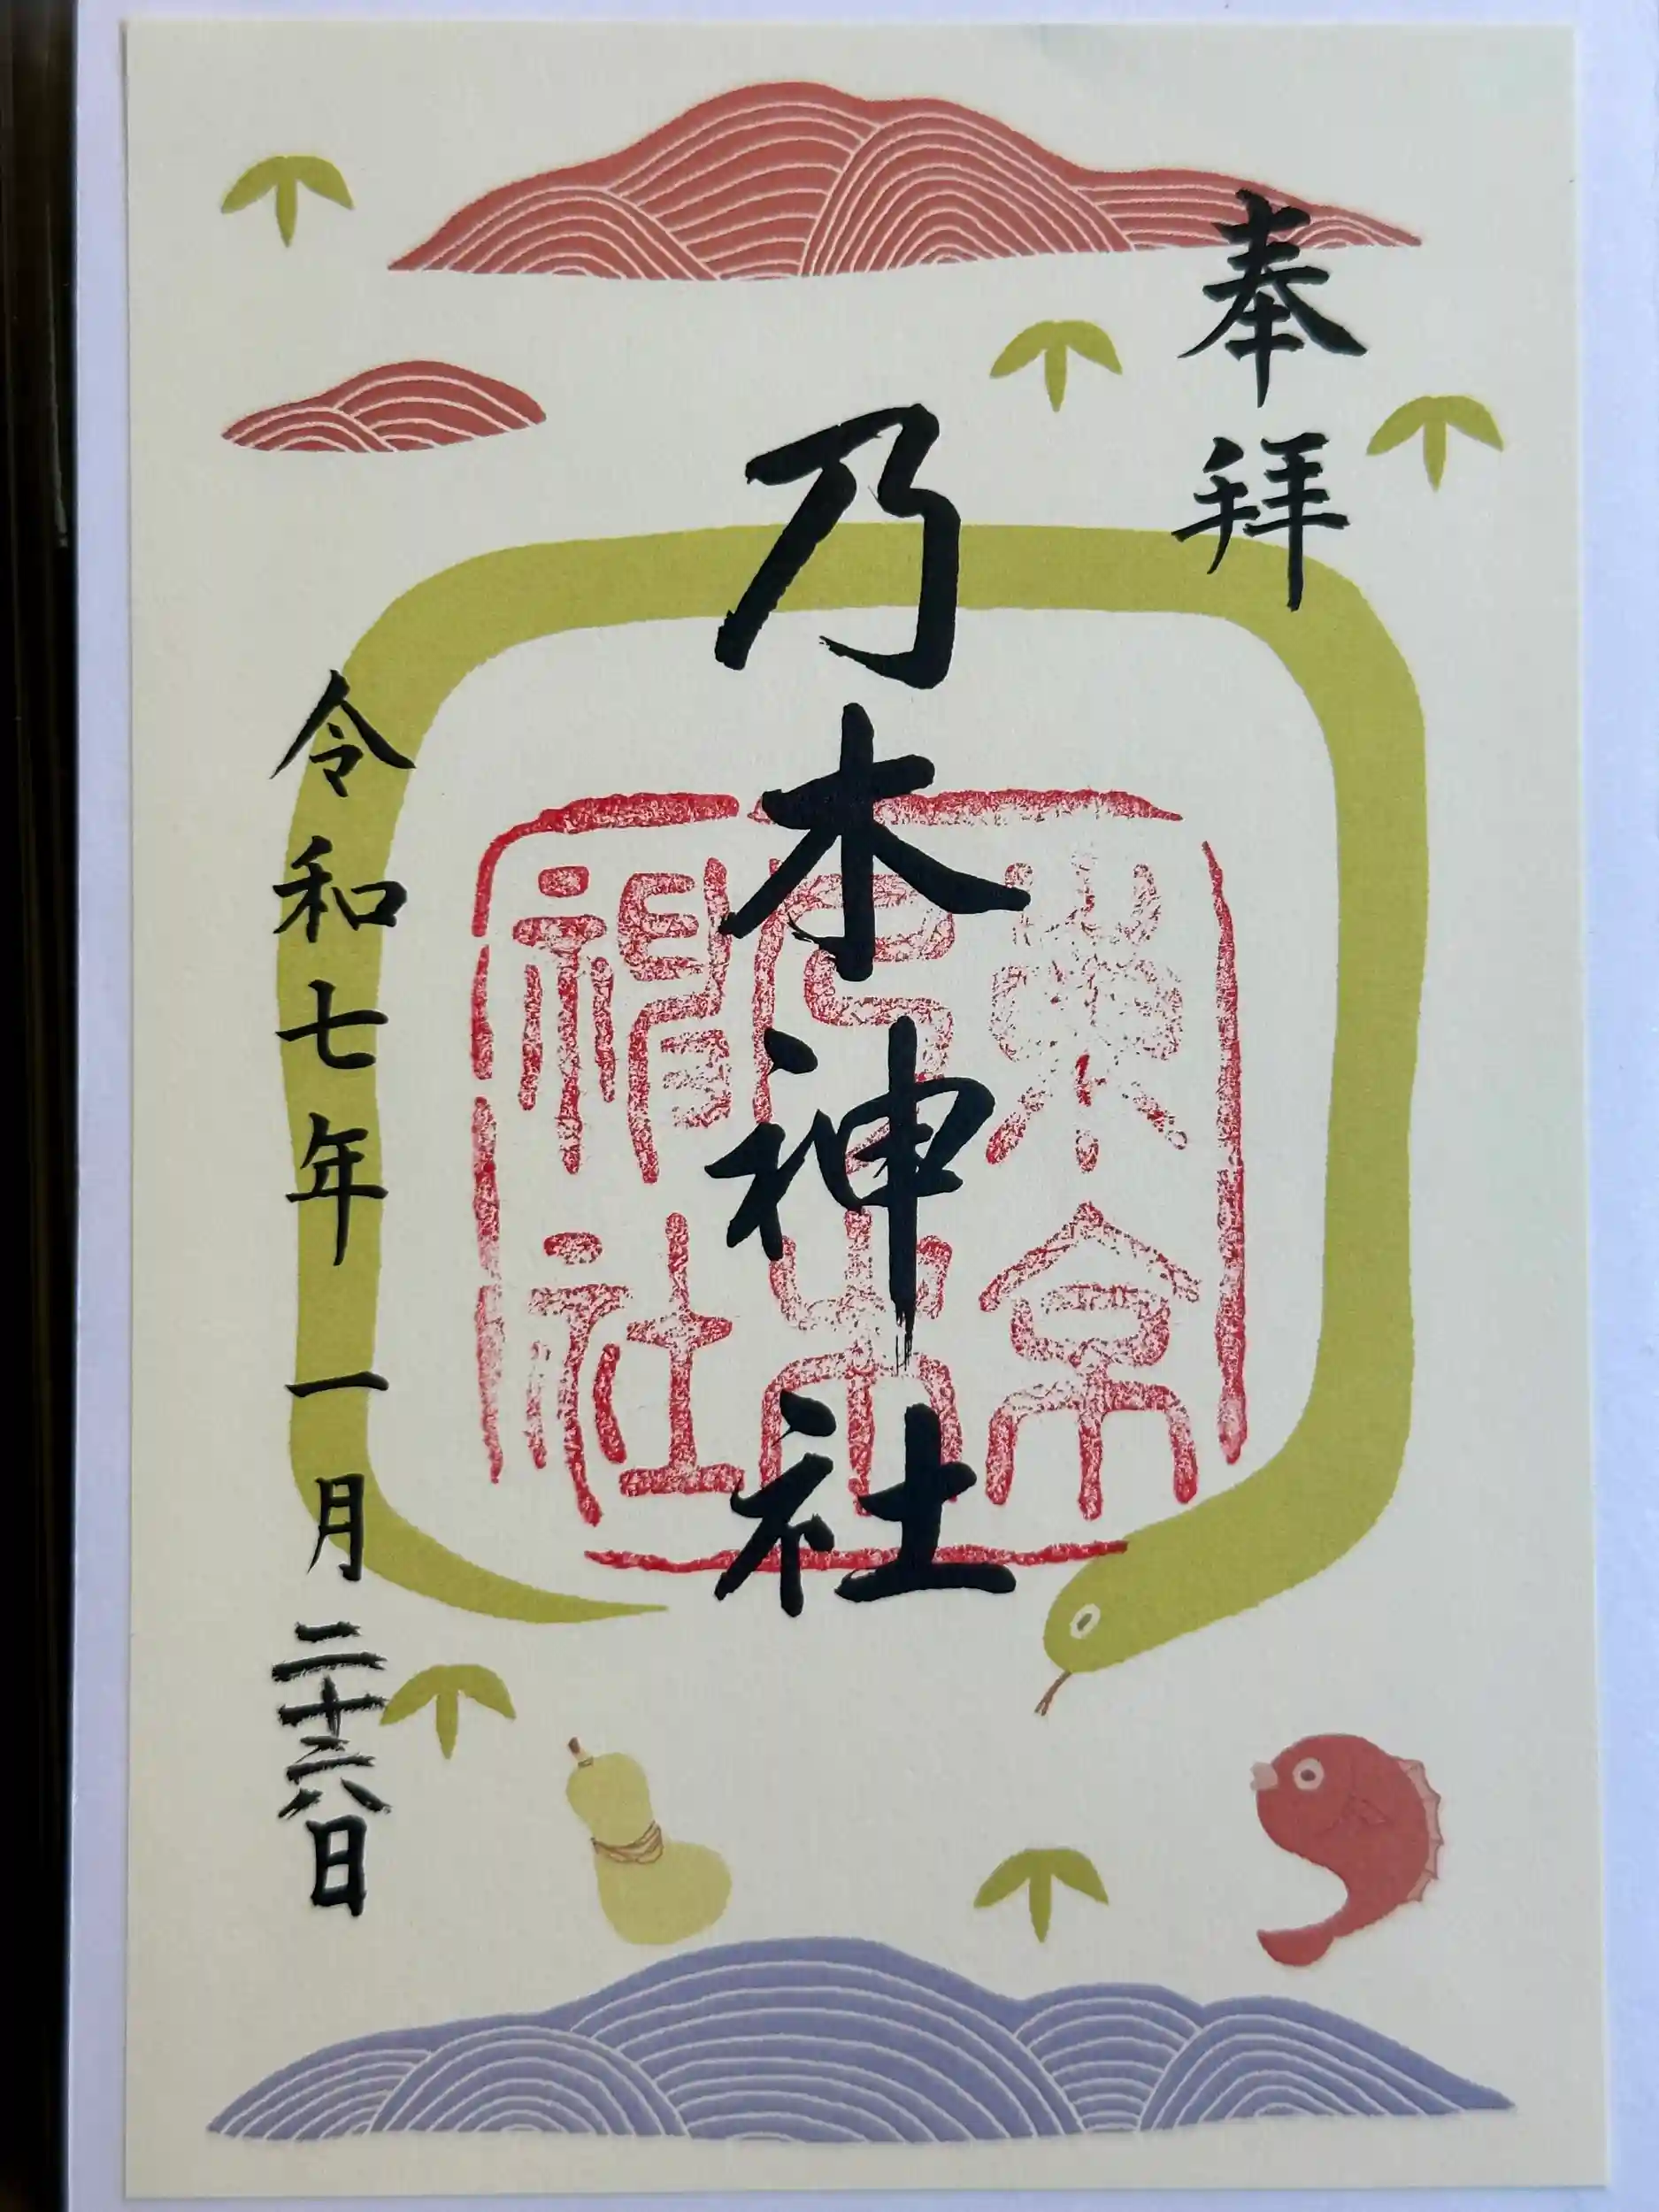 奉拝
乃木神社
令和七年一月二十六日